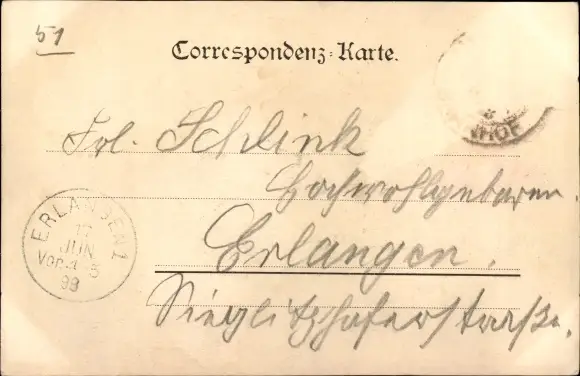 51
Correspondenz-Karte.
HOF
Frl. Schlink
Hochwohlgeboren.
ERLANGEN 1
17
JUN.
Vorm.
98
Erlangen.
Sieglitzhoferstraße.